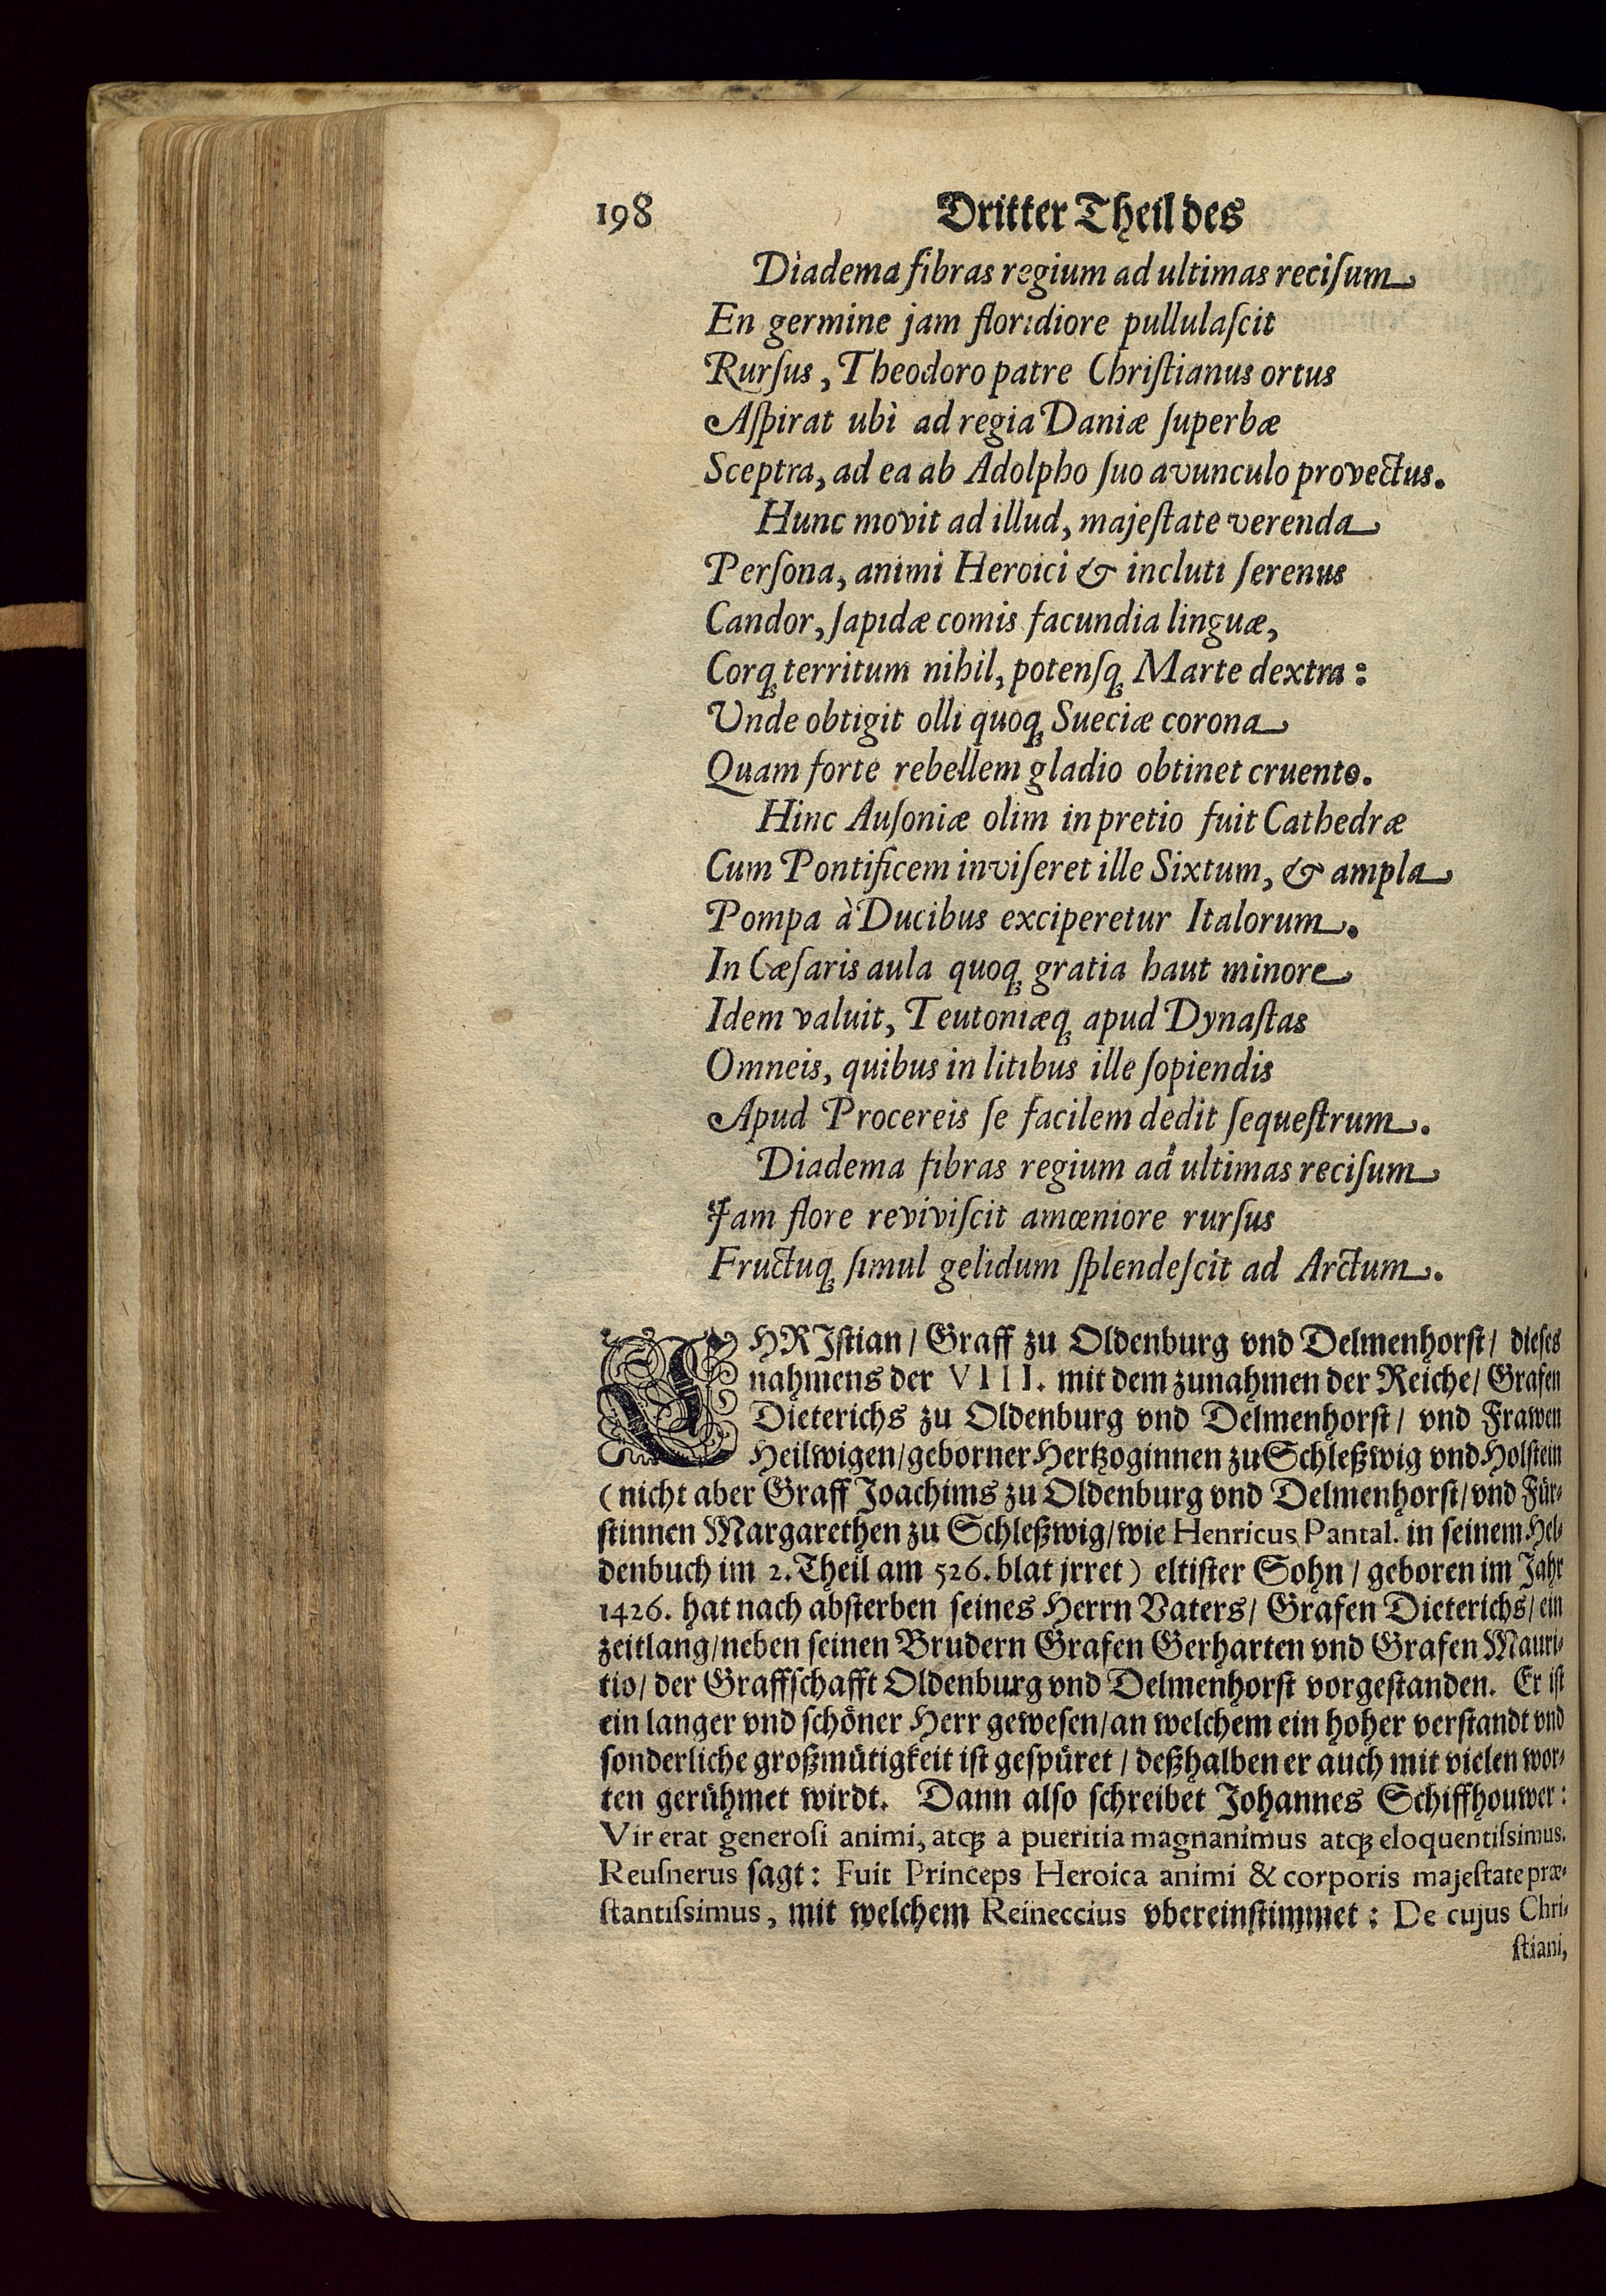 198 Dritter Theil des
Diadema fibras regium ad ultimas reciſum
En germine jam floridiore pullulaſcit
Rurſus, Theodoro patre Chriſtianus ortus
Aſpirat ubì ad regia Daniæ ſuperbæ
Sceptra, ad ea ab Adolpho ſuo avunculo provectus.
Hunc movit ad illud, majeſtate verenda
Perſona, animi Heroici & incluti ſerenus
Candor, ſapidæ comis facundia linguæ,
Corqꝫ territum nihil, potenſqꝫ Marte dextra:
Unde obtigit olli quoqꝫ Sueciæ corona
Quam forte rebellem gladio obtinet cruento.
Hinc Auſoniæ olim in pretio fuit Cathedræ
Cum Pontificem inviſeret ille Sixtum, & ampla
Pompa à Ducibus exciperetur Italorum.
In Cæſaris aula quoqꝫ gratia haut minore
Idem valuit, Teutoniæqꝫ apud Dynaſtas
Omneis, quibus in litibus ille ſopiendis
Apud Procereis ſe facilem dedit ſequeſtrum.
Diadema fibras regium ad ultimas reciſum
Jam flore reviviſcit amœniore rurſus
Fructuqꝫ ſimul gelidum ſplendeſcit ad Arctum.
CHRIſtian / Graff zu Oldenburg vnd Delmenhorſt / dieſes
nahmens der VIII. mit dem zunahmen der Reiche / Grafen
Dieterichs zu Oldenburg vnd Delmenhorſt / vnd Frawen
Heilwigen / geborner Hertzoginnen zu Schleßwig vnd Holſtein
(nicht aber Graff Joachims zu Oldenburg vnd Delmenhorſt / vnd Für-
ſtinnen Margarethen zu Schleßwig / wie Henricus Pantal. in ſeinem Hel-
denbuch im 2. Theil am 526. blat jrret) eltiſter Sohn / geboren im Jahr
1426. hat nach abſterben ſeines Herrn Vaters / Grafen Dieterichs / ein
zeitlang / neben ſeinen Brudern Grafen Gerharten vnd Grafen Mauri-
tio / der Graffſchafft Oldenburg vnd Delmenhorſt vorgeſtanden. Er iſt
ein langer vnd ſchöner Herr geweſen / an welchem ein hoher verſtandt vnd
ſonderliche großmütigkeit iſt geſpüret / deßhalben er auch mit vielen wor-
ten gerühmet wirdt. Dann alſo ſchreibet Johannes Schiffhouwer:
Vir erat generoſi animi, atqꝫ a pueritia magnanimus atqꝫ eloquentiſsimus.
Reuſnerus ſagt: Fuit Princeps Heroica animi & corporis majeſtate præ-
ſtantiſsimus, mit welchem Reineccius vbereinſtimmet: De cujus Chri-
ſtiani,